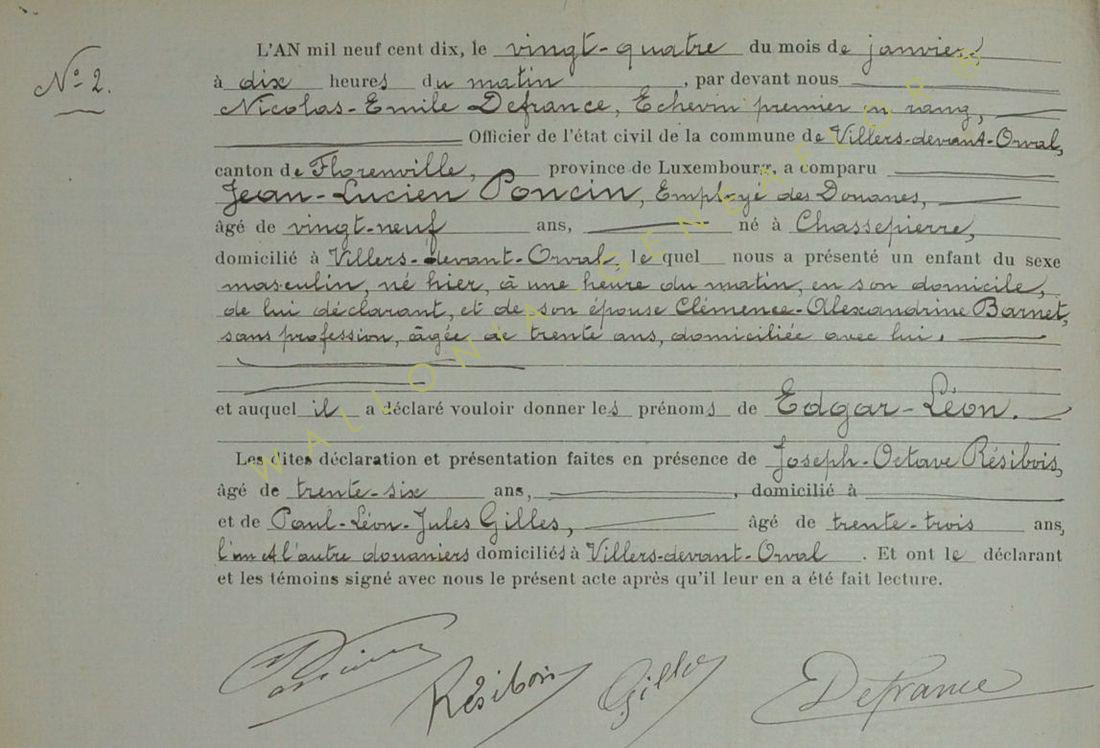 N° 2.
L'AN mil neuf cent dix, le vingt-quatre du mois de janvier
à dix heures du matin, par devant nous
Nicolas-Emile Defrance, Echevin premier en rang,
Officier de l'état civil de la commune de Villers-devant-Orval,
canton de Florenville, province de Luxembourg, a comparu
Jean-Lucien Poncin, Employé des Douanes,
âgé de vingt-neuf ans, né à Chassepierre,
domicilié à Villers-devant-Orval, le quel nous a présenté un enfant du sexe
masculin, né hier, à une heure du matin, en son domicile,
de lui déclarant, et de son épouse Clémence-Alexandrine Barnet,
sans profession, âgée de trente ans, domiciliée avec lui.
et auquel il a déclaré vouloir donner les prénoms de Edgar-Léon.
Les dites déclaration et présentation faites en présence de Joseph-Octave Résibois,
âgé de trente-six ans, domicilié à
et de Paul-Léon-Jules Gilles, âgé de trente-trois ans,
l'un et l'autre douaniers domiciliés à Villers-devant-Orval. Et ont le déclarant
et les témoins signé avec nous le présent acte après qu'il leur en a été fait lecture.
Résibois Gilles Defrance